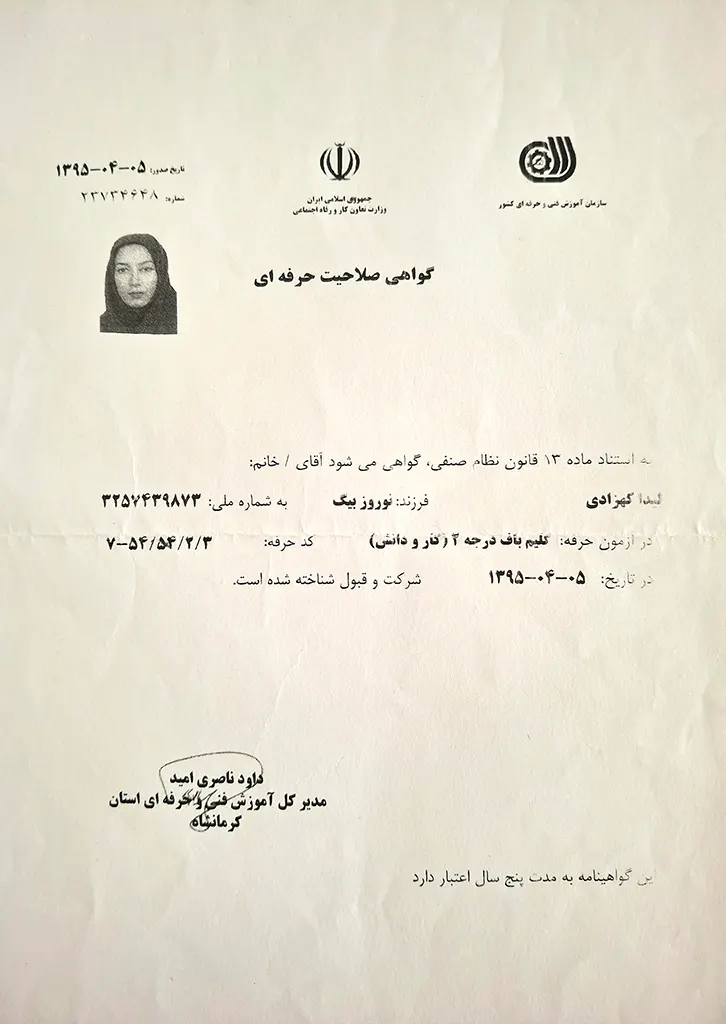 سازمان آموزش فنی و حرفه ای کشور
جمهوری اسلامی ایران
وزارت تعاون کار و رفاه اجتماعی
تاریخ صدور: ۱۳۹۵-۰۴-۰۵
شماره: ۲۳۷۳۴۶۴۸
گواهی صلاحیت حرفه ای
به استناد ماده ۱۳ قانون نظام صنفی، گواهی می شود آقای / خانم:
لیدا کهزادی فرزند: نوروز بیگ به شماره ملی: ۳۲۵۷۴۳۹۸۷۳
در آزمون حرفه: گلیم باف درجه ۲ (کار و دانش) کد حرفه: ۷-۵۴/۵۴/۲/۳
در تاریخ: ۱۳۹۵-۰۴-۰۵ شرکت و قبول شناخته شده است.
داود ناصری امید
مدیر کل آموزش فنی و حرفه ای استان
کرمانشاه
این گواهینامه به مدت پنج سال اعتبار دارد